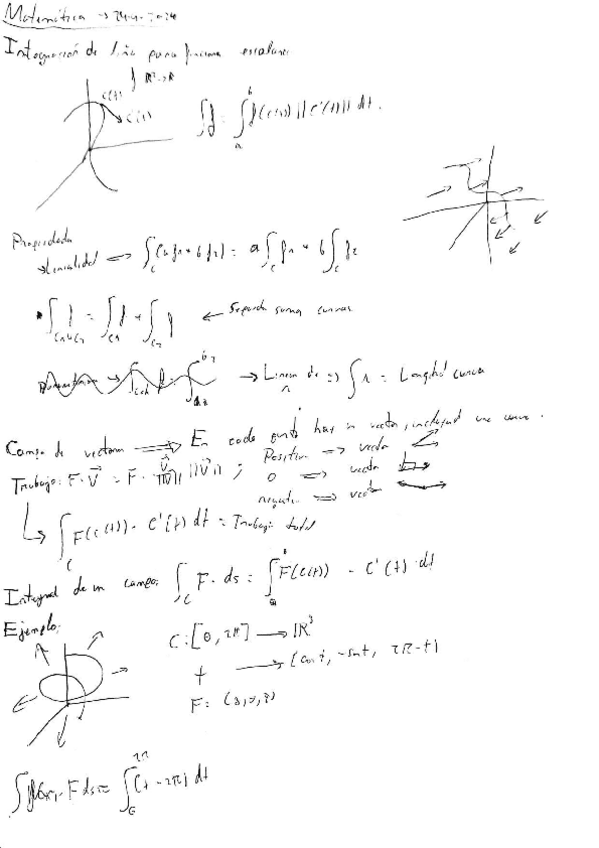 Matemática →
Integración de línea para funciones escalares
f R³→R
C(t) C'(t)
∫f = ∫_a^b f(c(t)) ||C'(t)|| dt.
Propiedades
→Linealidad ⇒ ∫_C (a f1 + b f2) = a∫_C f1 + b∫_C f2
• ∫_{C1∪C2} f = ∫_{C1} f + ∫_{C2} f ← Separada suma curvas
→ Linea de 1 ⇒ ∫1 = Longitud curva
Campo de vectores ⇒ En cada punto hay un vector, incluyendo una curva.
Trabajo: F·V = F· V/||V|| ||V|| ; Positivo ⇒ vector
0 ⇒ vector
negativo ⇒ vector
∫_C F(c(t)) · C'(t) dt = Trabajo total
Integral de un campo: ∫_C F · ds = ∫_a^b F(c(t)) · C'(t) dt
Ejemplo:
C: [0, 2π] → R³
t → (cos t, -sin t, 2π-t)
F:
∫ F ds = ∫_0^{2π} (t - 2π) dt